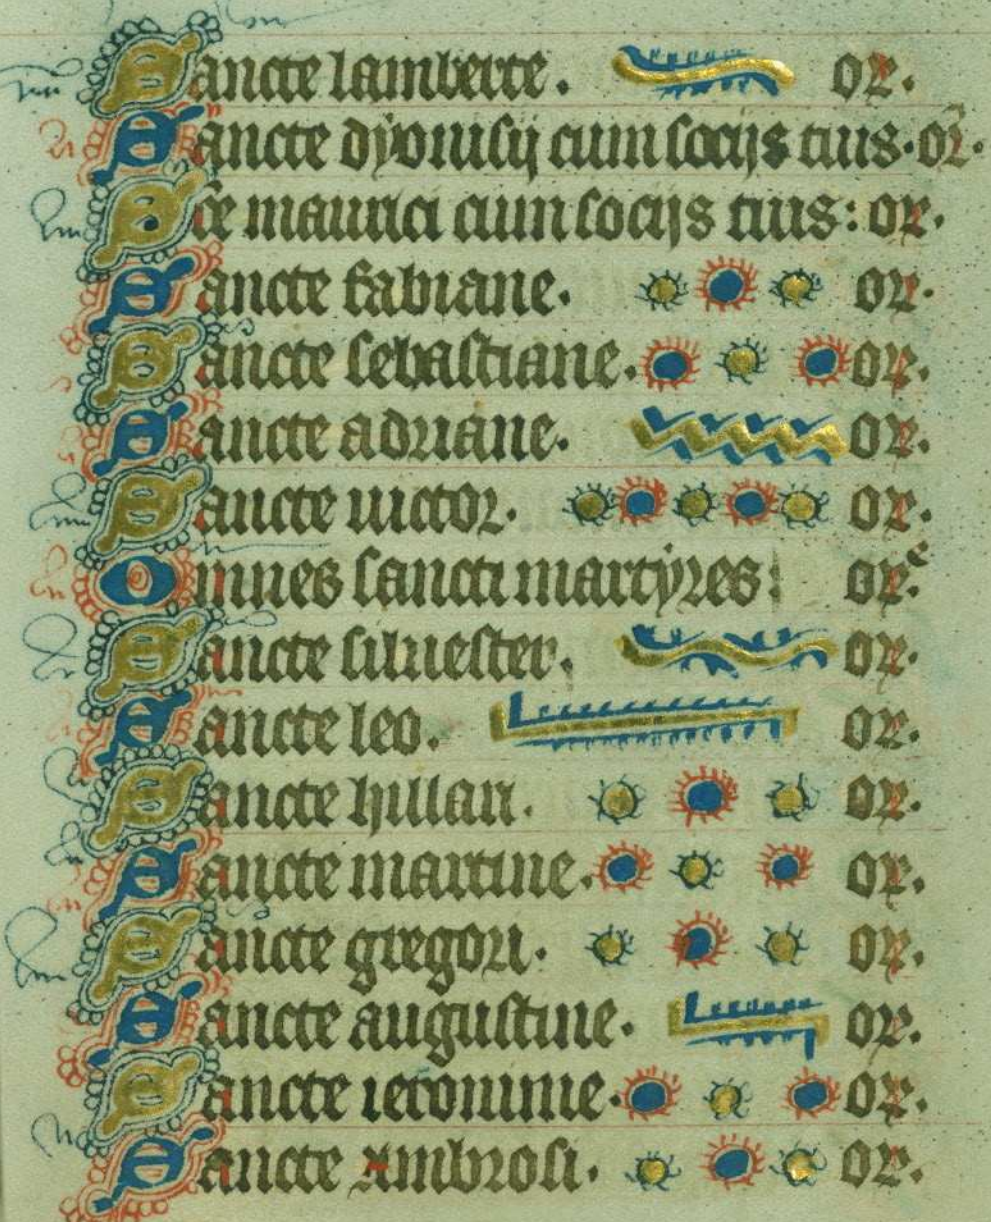 Sancte lamberte. or.
Sancte dyonisij cum socijs tuis. or.
Sce maurici cum socijs tuis: or.
Sancte fabiane. or.
Sancte sebastiane. or.
Sancte adriane. or.
Sancte uictor. or.
Omnes sancti martyres: or.
Sancte siluester. or.
Sancte leo. or.
Sancte hillari. or.
Sancte martine. or.
Sancte gregori. or.
Sancte augustine. or.
Sancte ieronime. or.
Sancte Ambrosi. or.